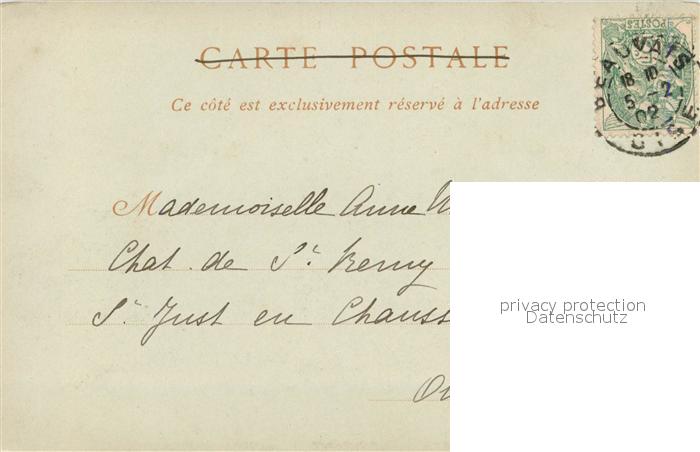 CARTE POSTALE
Ce côté est exclusivement réservé à l'adresse
POSTES
BEAUVAIS
18 10
5 - 2
02
OISE
Mademoiselle Anne
Chat. de St. Remy
St Just en Chauss
privacy protection
Datenschutz